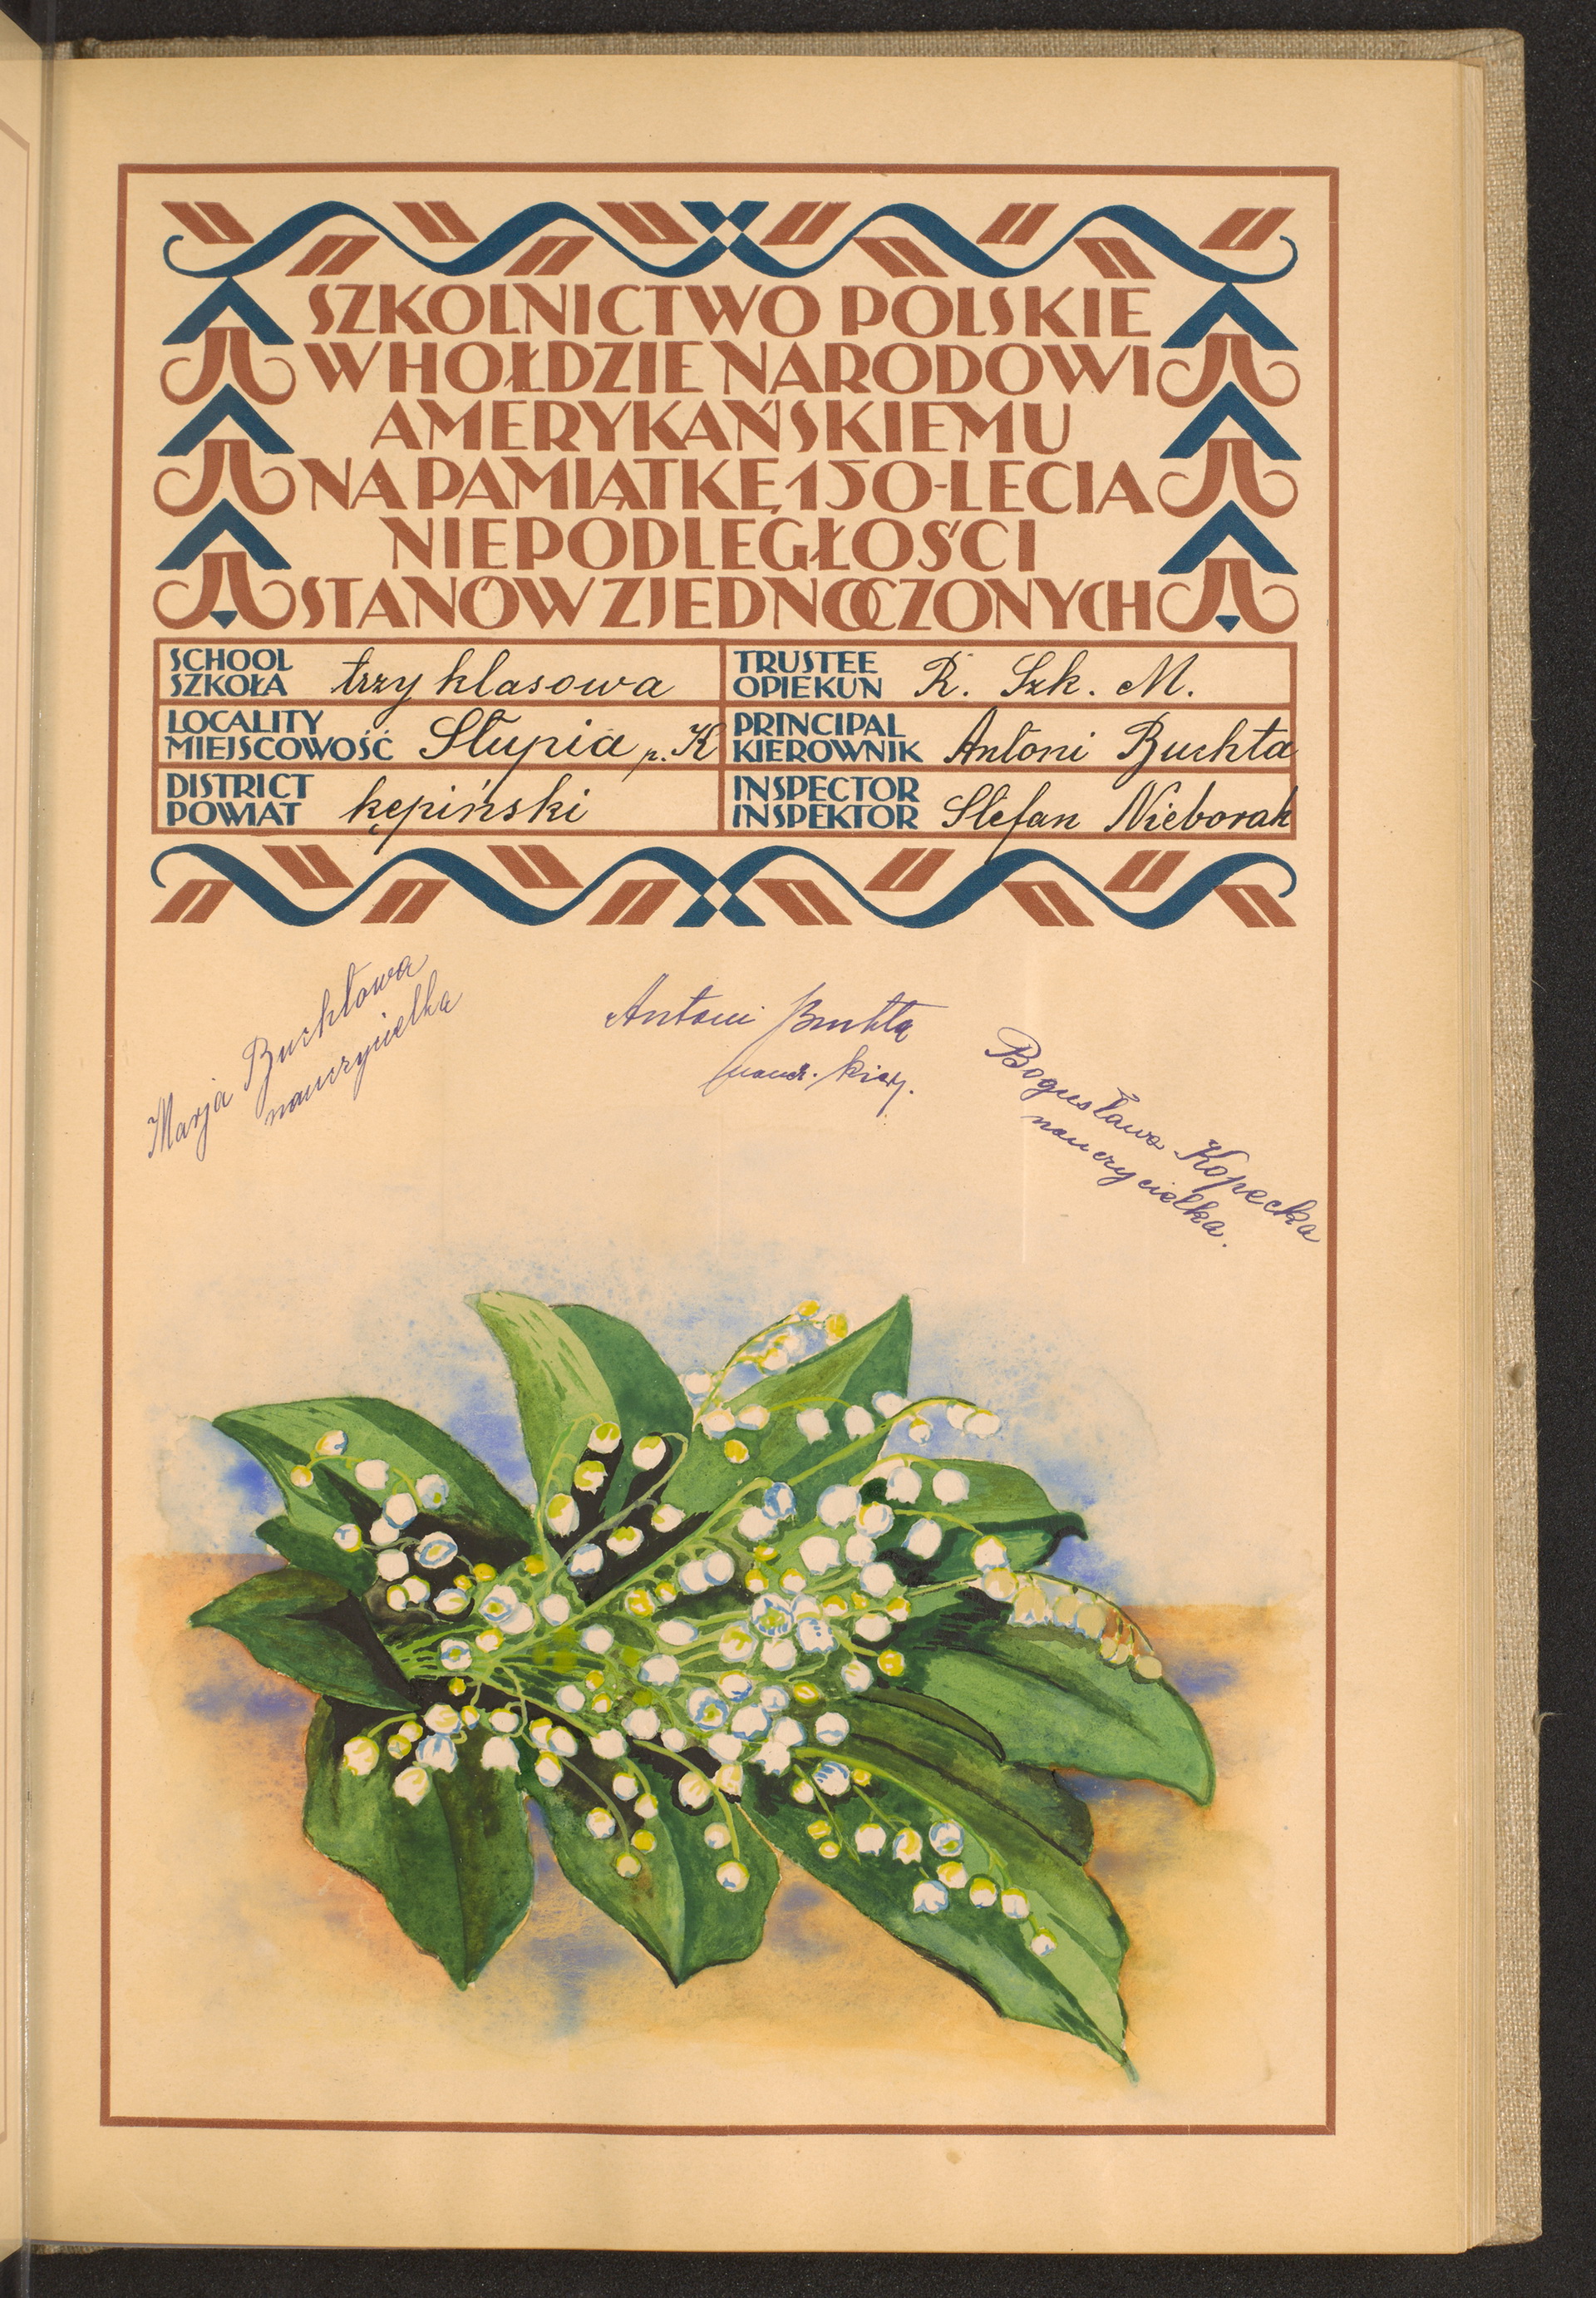 SZKOLNICTWO POLSKIE
W HOŁDZIE NARODOWI
AMERYKAŃSKIEMU
NA PAMIĄTKĘ 150-LECIA
NIEPODLEGŁOŚCI
STANÓW ZJEDNOCZONYCH
SCHOOL
SZKOŁA trzy klasowa
TRUSTEE
OPIEKUN R. Szk. M.
LOCALITY
MIEJSCOWOŚĆ Słupia p. K
PRINCIPAL
KIEROWNIK Antoni Buchta
DISTRICT
POWIAT kępiński
INSPECTOR
INSPEKTOR Stefan Nieborak
Marja Buchtowa
nauczycielka
Antoni Buchta
naucz. kier.
Bogusława Kopecka
nauczycielka.